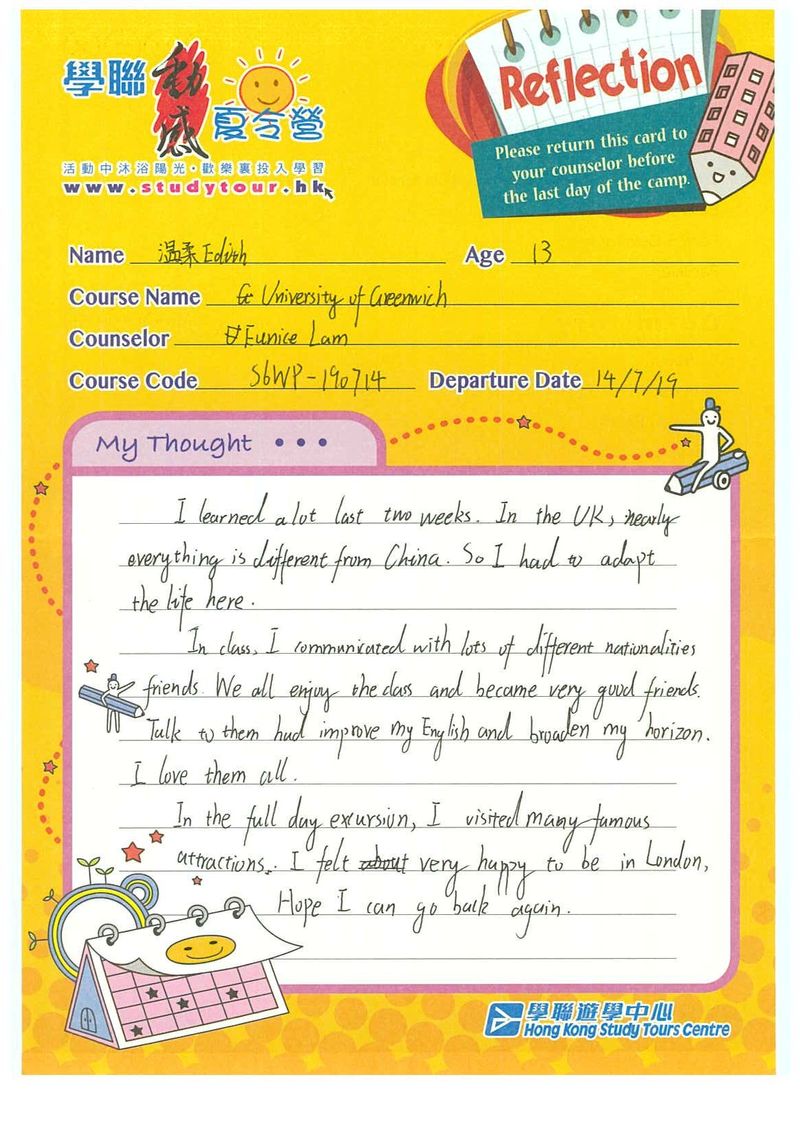 學聯 動感 夏令營
活動中沐浴陽光·歡樂裏投入學習
www.studytour.hk
Reflection
Please return this card to
your counselor before
the last day of the camp.
Name 温柔 Edith
Age 13
Course Name University of Greenwich
Counselor Eunice Lam
Course Code S6WP-190714
Departure Date 14/7/19
My Thought • • •
I learned a lot last two weeks. In the UK, nearly
everything is different from China. So I had to adapt
the life here.
In class, I communicated with lots of different nationalities
friends. We all enjoy the class and became very good friends.
Talk to them had improve my English and broaden my horizon.
I love them all.
In the full day excursion, I visited many famous
attractions. I felt about very happy to be in London,
Hope I can go back again.
學聯遊學中心
Hong Kong Study Tours Centre